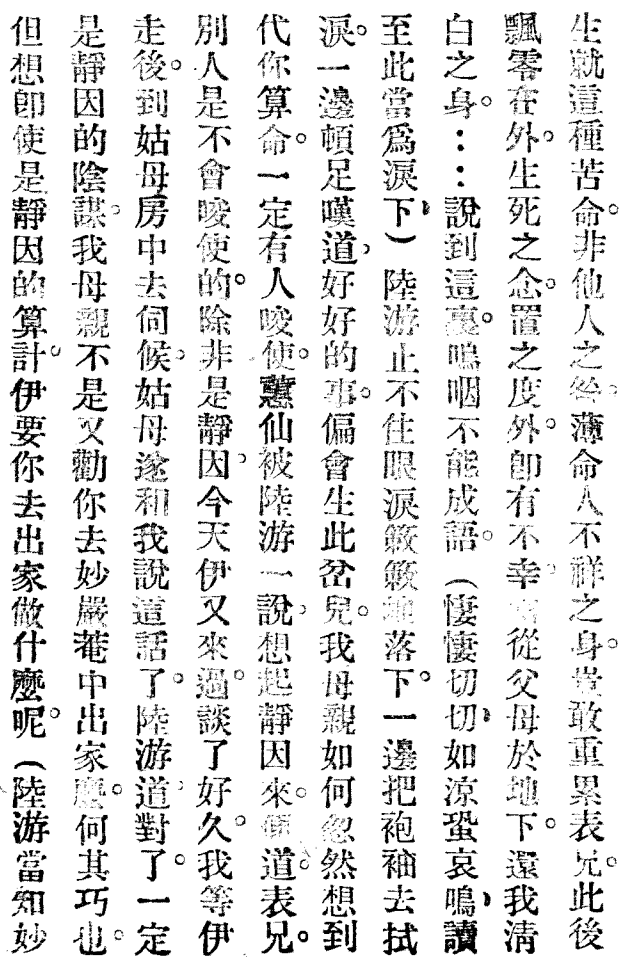 生就這種苦命。非他人之咎。薄命人不祥之身。豈敢重累表兄。此後
飄零在外。生死之念。置之度外。卽有不幸。從父母於地下。還我清
白之身。……說到這裏。嗚咽不能成語。(悽悽切切。如涼蛩哀鳴。讀
至此當爲淚下。)陸游止不住眼淚簌簌地落下。一邊把袍袖去拭
淚。一邊頓足嘆道。好好的事。偏會生此岔兒。我母親如何忽然想到
代你算命。一定有人唆使。蕙仙被陸游一說。想起靜因來。道表兄。
別人是不會唆使的。除非是靜因。今天伊又來過。談了好久。我等伊
走後。到姑母房中去伺候。姑母遂和我說這話了。陸游道。對了。一定
是靜因的陰謀。我母親不是又勸你去妙嚴菴中出家麼。何其巧也。
但想卽使是靜因的算計。伊要你去出家做什麼呢。(陸游當知妙